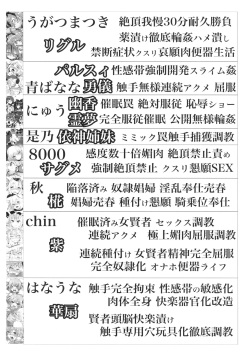 うがつまつき 絶頂我慢30分耐久勝負
リグル 薬漬け徹底輪姦ハメ潰し
禁断症状クスリ哀願肉便器生活
パルスィ 性感帯強制開発スライム姦
青ばなな 勇儀 触手無様連続アクメ 屈服
にゅう 幽香 催眠罠 絶対服従 恥辱ショー
霊夢 完全服従催眠 公開無様輪姦
是乃 依神姉妹 ミミック罠触手捕獲調教
8000 感度数十倍媚肉 絶頂禁止責め
サグメ 強制絶頂禁止 クスリ懇願SEX
秋 陥落済み 奴隷娼婦 淫乱奉仕売春
椛 娼婦売春 種付け懇願 騎乗位奉仕
chin 催眠済み女賢者 セックス調教
連続アクメ 極上媚肉屈服調教
紫 連続種付け 女賢者精神完全屈服
完全奴隷化 オナホ便器ライフ
はなうな 触手完全拘束 性感帯の敏感化
肉体全身 快楽器官化改造
華扇 賢者頭脳快楽漬け
触手専用穴玩具化徹底調教